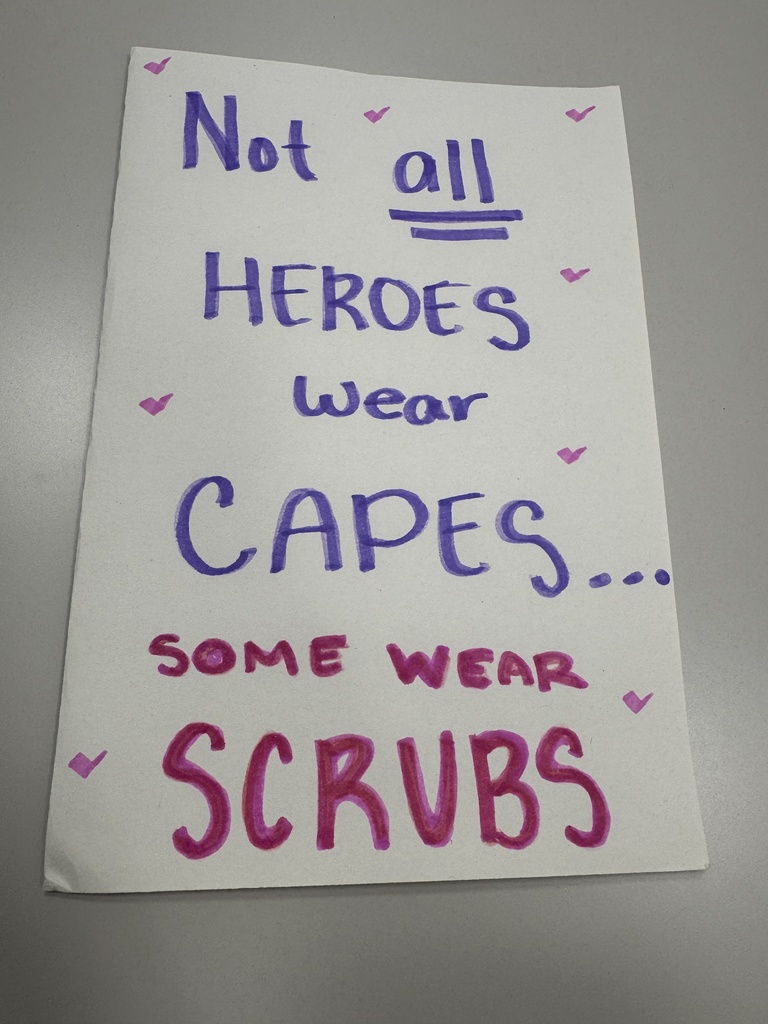 Not all
HEROES
wear
CAPES...
SOME WEAR
SCRUBS